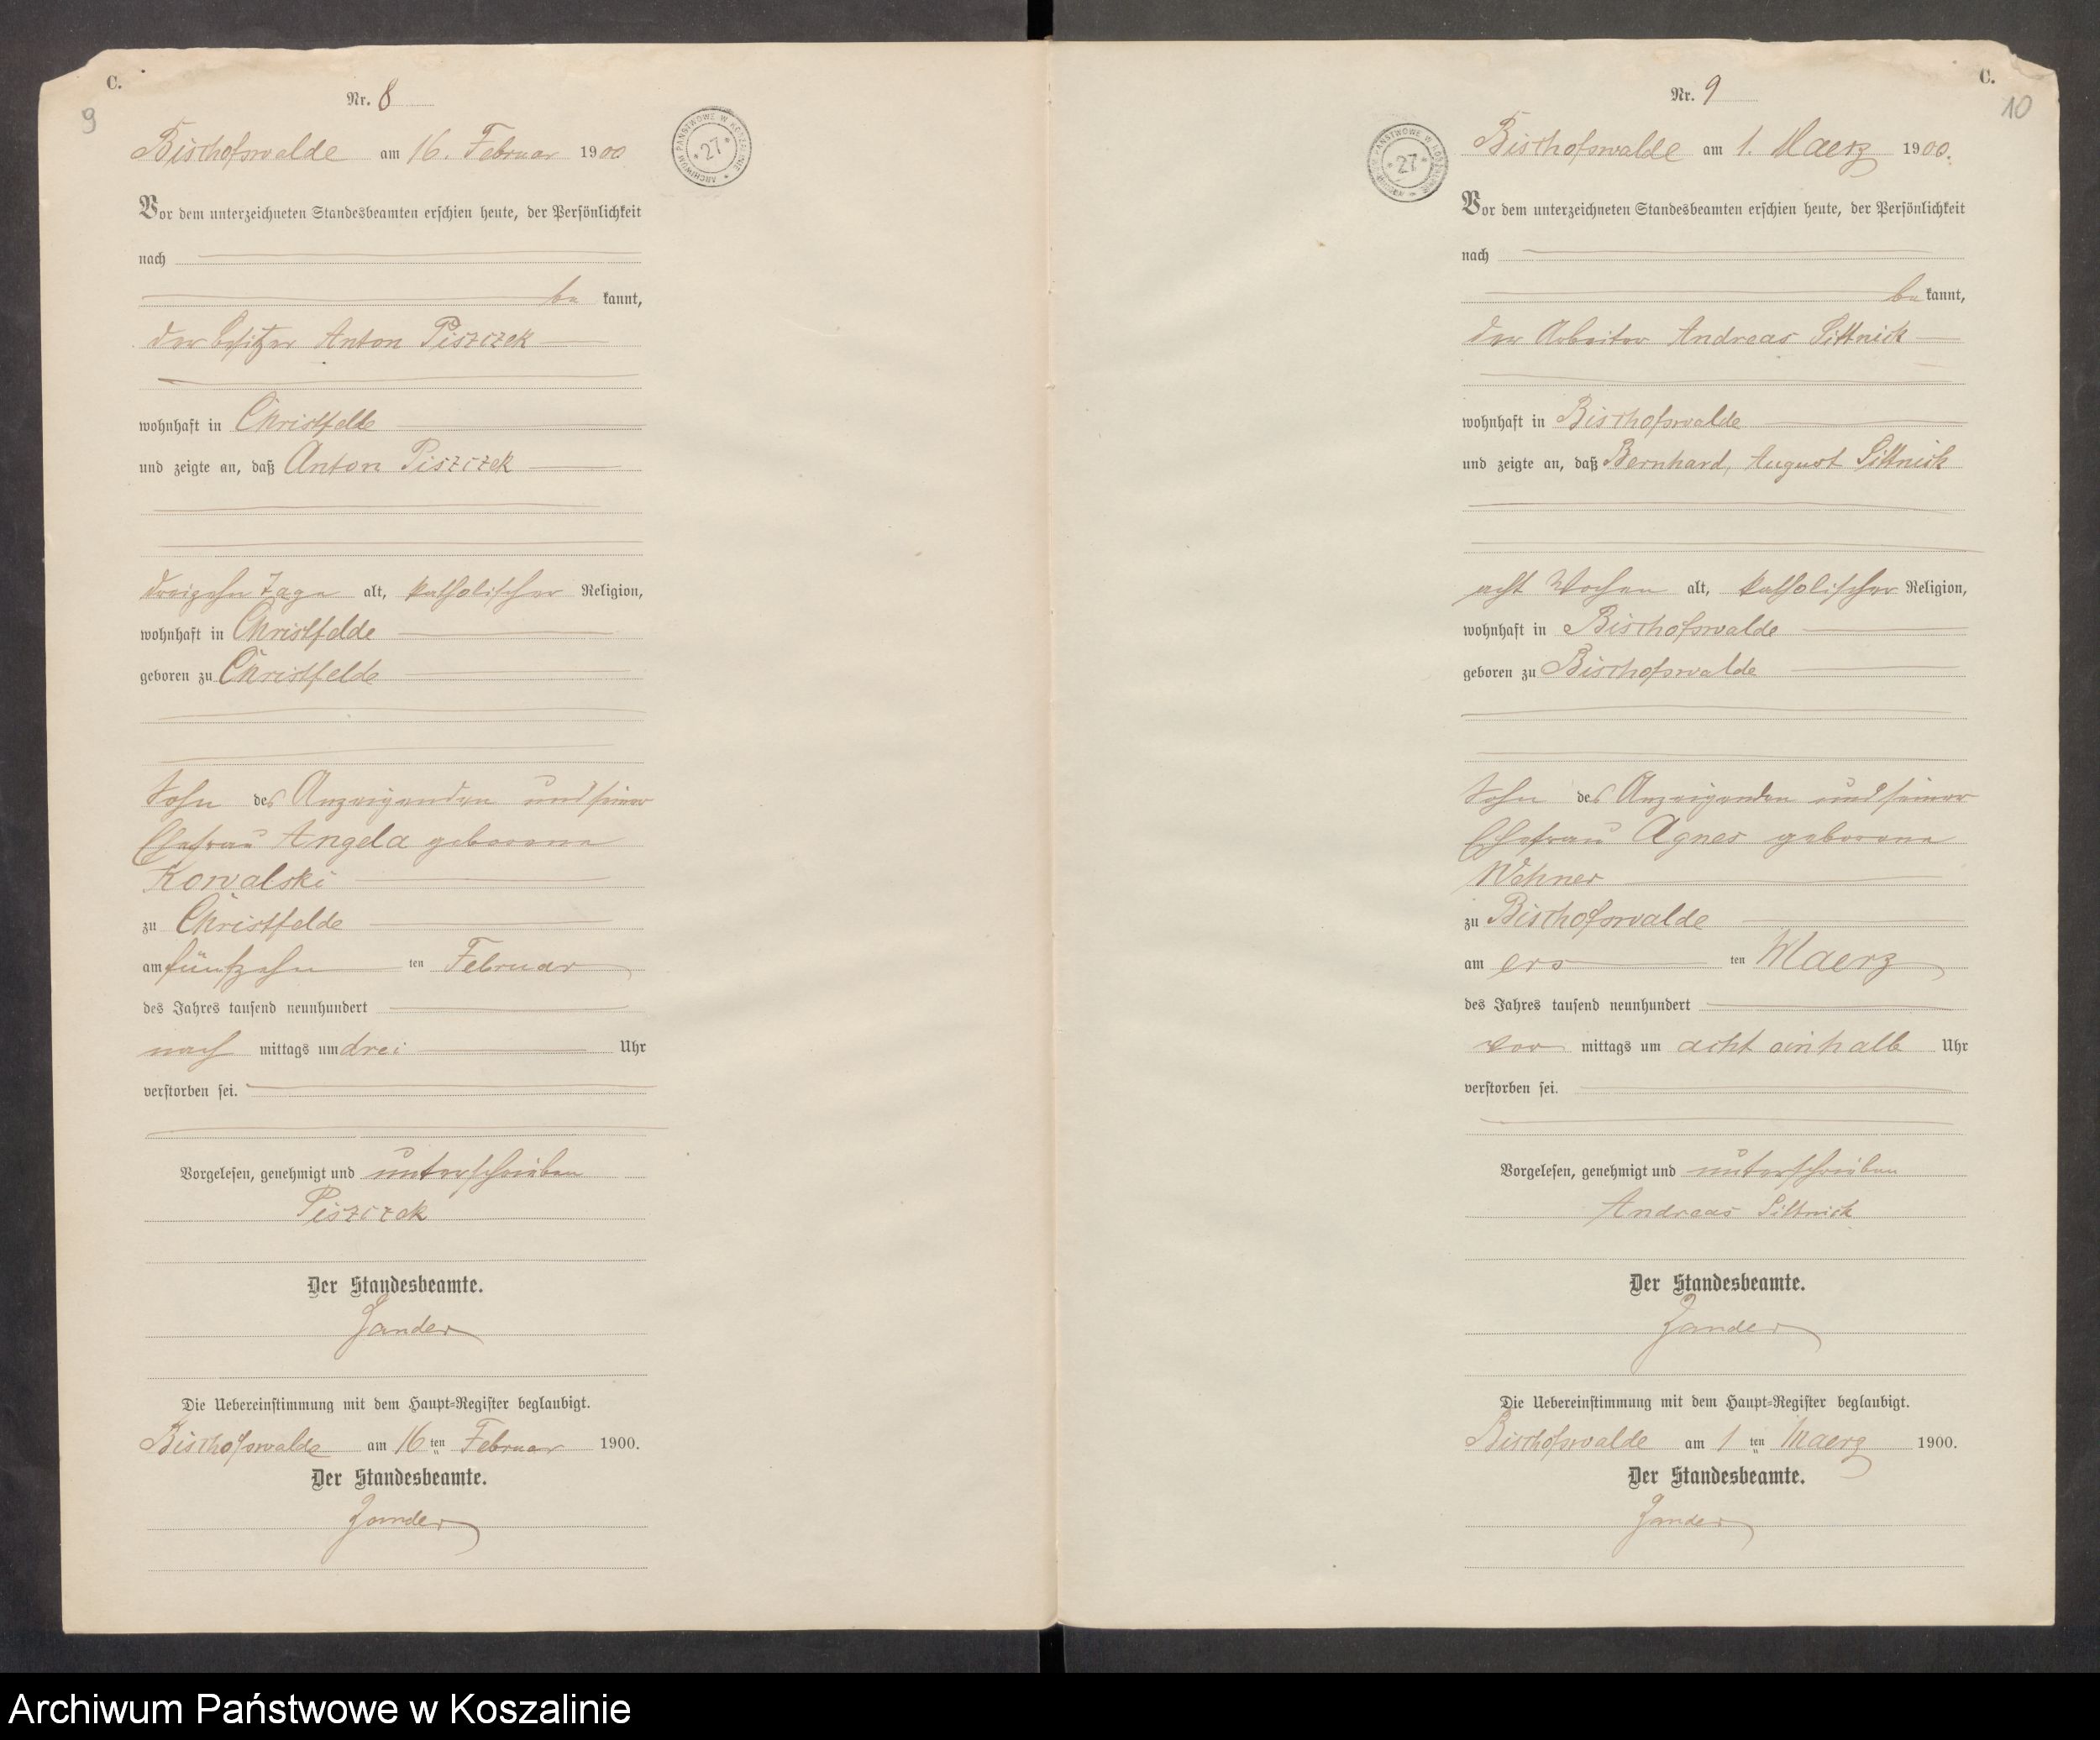 C.
9
Nr. 8
Bischofswalde am 16. Februar 1900
ARCHIWUM PAŃSTWOWE W KOSZALINIE * 27 *
Vor dem unterzeichneten Standesbeamten erschien heute, der Persönlichkeit
nach
be kannt,
der Besitzer Anton Piszczek
wohnhaft in Christfelde
und zeigte an, daß Anton Piszczek
dreizehn Tage alt, katholischer Religion,
wohnhaft in Christfelde
geboren zu Christfelde
Sohn des Anzeigenden und seiner
Ehefrau Angela geborene
Kowalski
zu Christfelde
am fünfzehn ten Februar
des Jahres tausend neunhundert
nach mittags um drei Uhr
verstorben sei.
Vorgelesen, genehmigt und unterschrieben
Piszczek
Der Standesbeamte.
Zander
Die Uebereinstimmung mit dem Haupt-Register beglaubigt.
Bischofswalde am 16 ten Februar 1900.
Der Standesbeamte.
Zander
C.
10
Nr. 9
Bischofswalde am 1. Maerz 1900.
ARCHIWUM PAŃSTWOWE W KOSZALINIE * 27 *
Vor dem unterzeichneten Standesbeamten erschien heute, der Persönlichkeit
nach
be kannt,
der Arbeiter Andreas Sittnick
wohnhaft in Bischofswalde
und zeigte an, daß Bernhard, August Sittnick
acht Wochen alt, katholischer Religion,
wohnhaft in Bischofswalde
geboren zu Bischofswalde
Sohn des Anzeigenden und seiner
Ehefrau Agnes geborene
Wehner
zu Bischofswalde
am ers ten Maerz
des Jahres tausend neunhundert
vor mittags um acht einhalb Uhr
verstorben sei.
Vorgelesen, genehmigt und unterschrieben
Andreas Sittnick
Der Standesbeamte.
Zander
Die Uebereinstimmung mit dem Haupt-Register beglaubigt.
Bischofswalde am 1 ten Maerz 1900.
Der Standesbeamte.
Zander
Archiwum Państwowe w Koszalinie